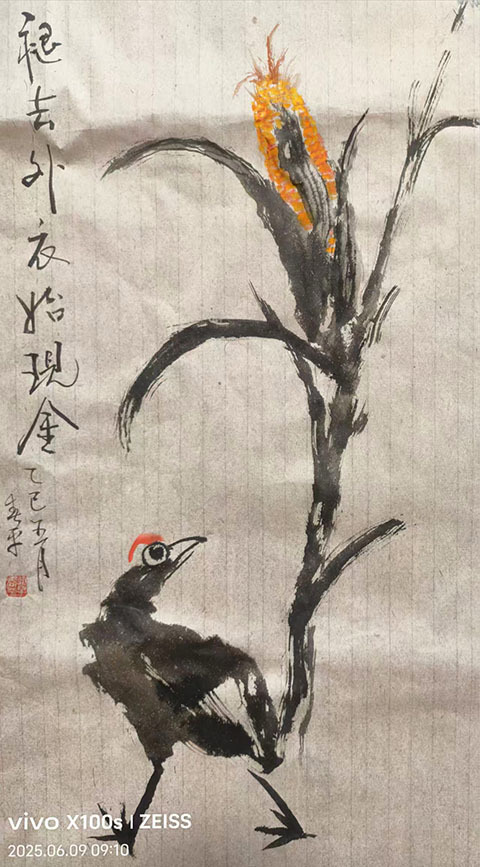 褪去外衣始現金
乙巳五月
春平
vivo X100s | ZEISS
2025.06.09 09:10